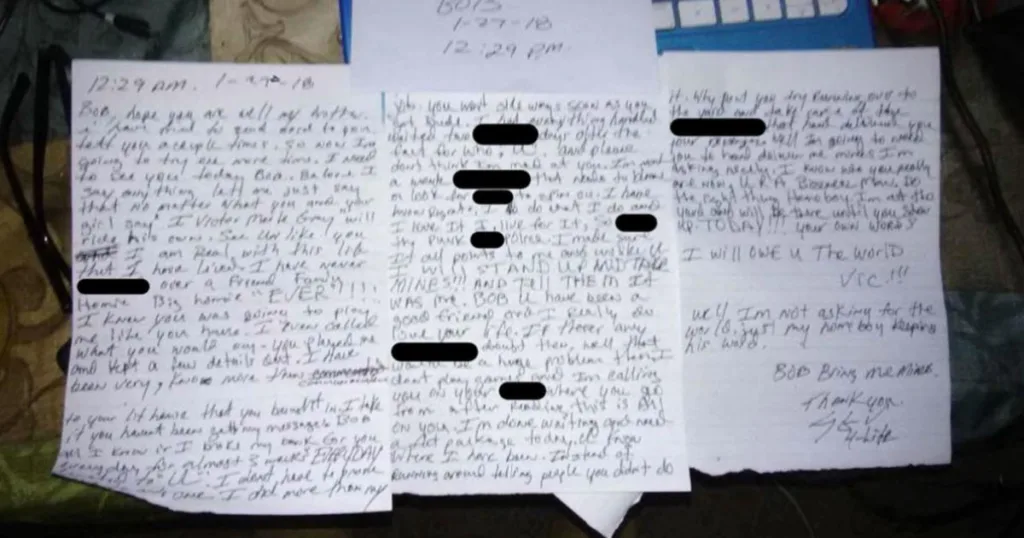 BOB
1-27-18
12:29 P.M.
12:29 AM. 1-27-18
BOB, hope you are well my brother
I have tried in good accord to you
text you a couple times. So now I'm
going to try one more time. I need
to see you today Bob. Before I
say anything let me just say
that no matter what you and your
girl say "I Victor Mark Gray" will
ride his own. See Unlike you
I am Real with this life
that I have lived. I have never
over a Friend Family
Homie Big homie "EVER"!!!!
I knew you was going to play
me like you have. I even called
what you would say. you played me
and kept a few details out. I have
been very, know more than
to your lil house that you benefit in. I take
it you havent been getting my messages BOB
I know is I broke my back for you
everyday for almost 3 weeks "EVERYDAY
to "U". I dont have to prove
one. I did more than my
Job. you went old ways soon as you
got I had everything handled
waited two days after the
fact for who, "U" and please
dont think I'm mad at you. I'm not
a that needs to know
or look for to rely on. I have
I do what I do and
I love it I live for it, So
try punk Police. I made sure
It all points to me and unlike U
I will STAND UP AND TAKE
MINES!!! AND Tell THEM IT
WAS ME. BOB U have been a
good friend and I really do
love your life. If theres any
doubt then, well that
would be a huge problem then I
dont play games and I'm calling
you on your where you go
from after Reading this is All
on you. I'm done waiting and need
a package today. U know
where I have been. Instead of
Running around telling people you dont do
it. Why dont you try Running over to
the yard and take care of the
that hand delivered you
your Well I'm going to need
you to hand deliver me mines I'm
asking nicely. I know who you really
are now, U R A Business Man. Do
the right thing Homeboy. I'm at the
yard and will be there until you show
UP. TODAY!!! your own WORDS
I will OWE U The World
Vic!!!
well I'm not asking for the
world. Just my homeboy keeping
his word.
BOB Bring me mines.
Thank you.
4-Life